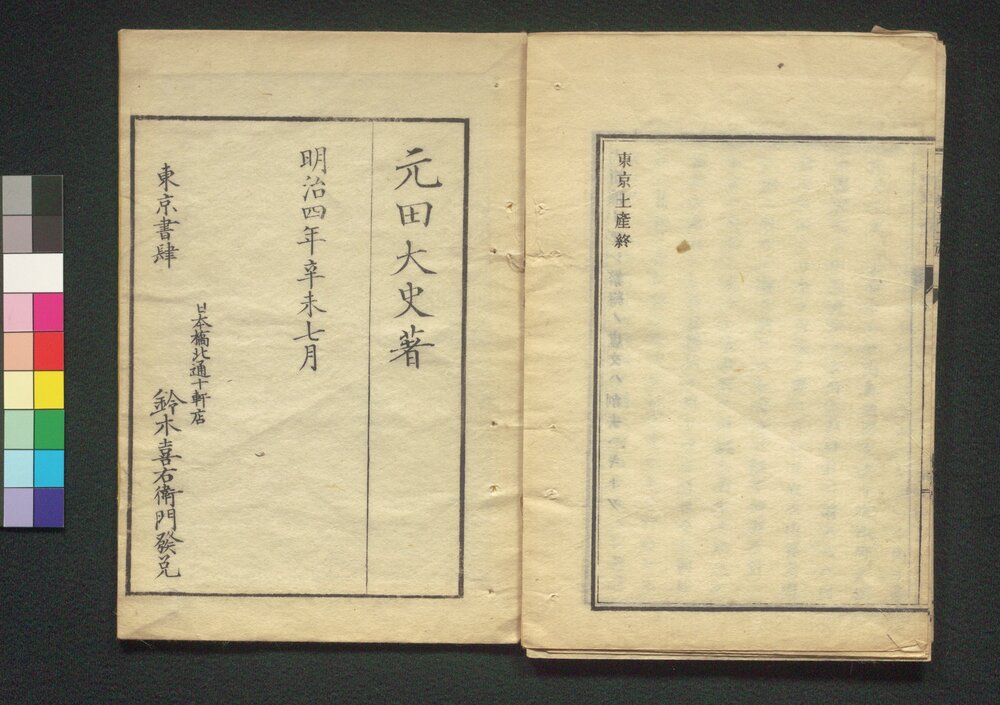 東京土産終
元田大史著
明治四年辛未七月
東京書肆
日本橋北通十軒店
鈴木喜右衛門發兌